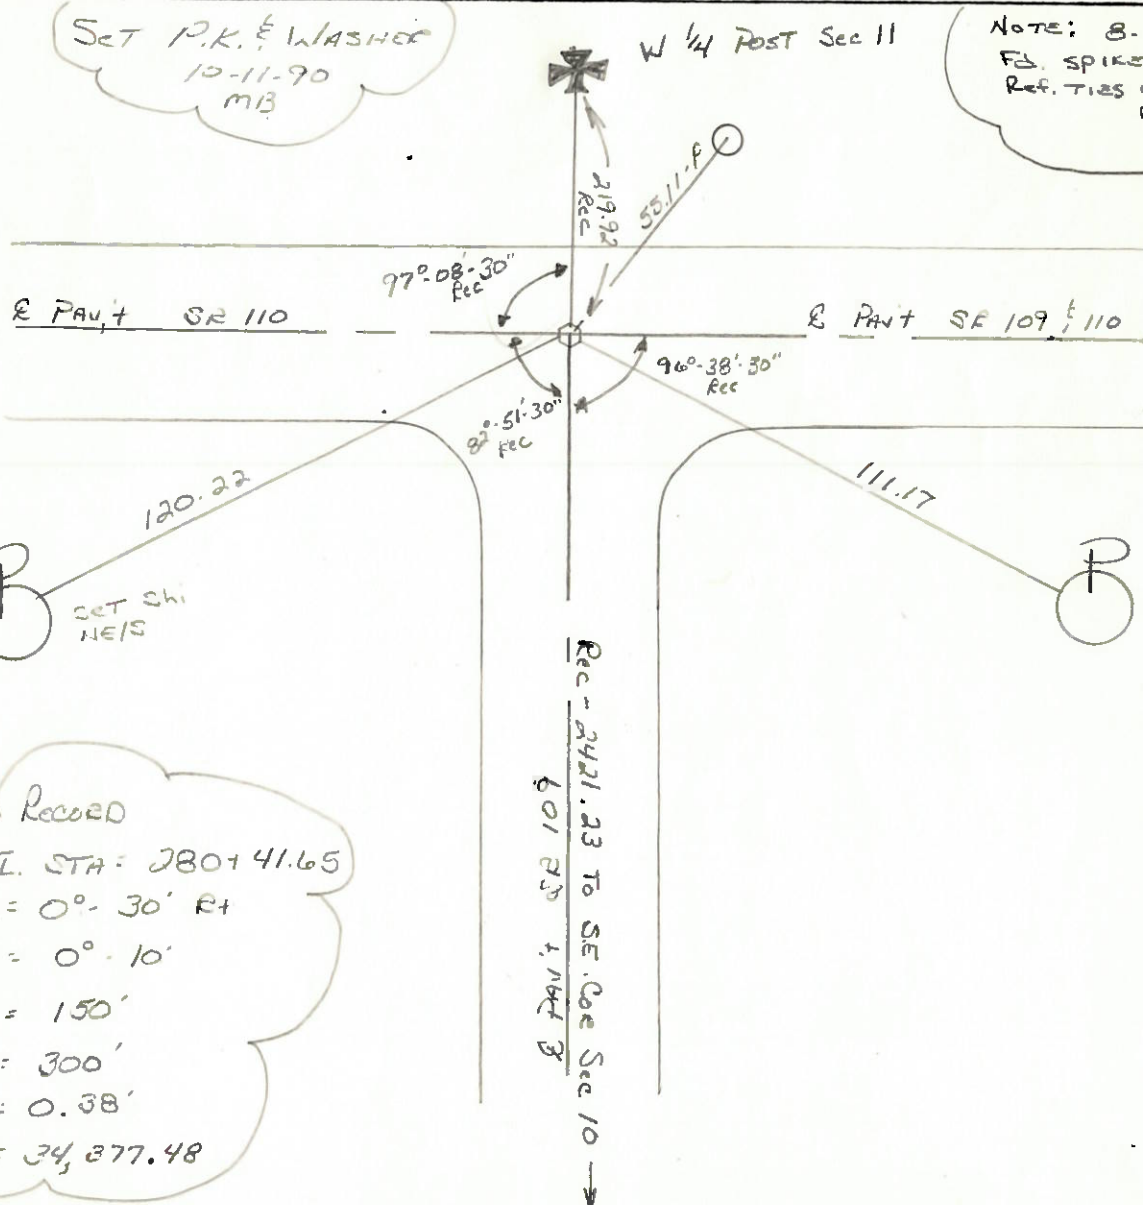 SET P.K. & WASHER
10-11-90
MB
W 1/4 POST Sec 11
NOTE: 8-
Fd. SPIKE
Ref. TIES
219.92
Rec
55.11-P
97°-08'-30"
Rec
℄ PAV'T SR 110
℄ PAV'T SR 109 & 110
96°-38'-30"
Rec
82°-51'-30"
Rec
120.22
111.17
SET Shi
NE/S
Rec - 2421.23 To S.E. Cor Sec 10
℄ PAV'T SR 109
RECORD
I. STA = 280+41.65
= 0°-30' Rt
= 0°-10'
= 150'
= 300'
= 0.38'
= 34,377.48